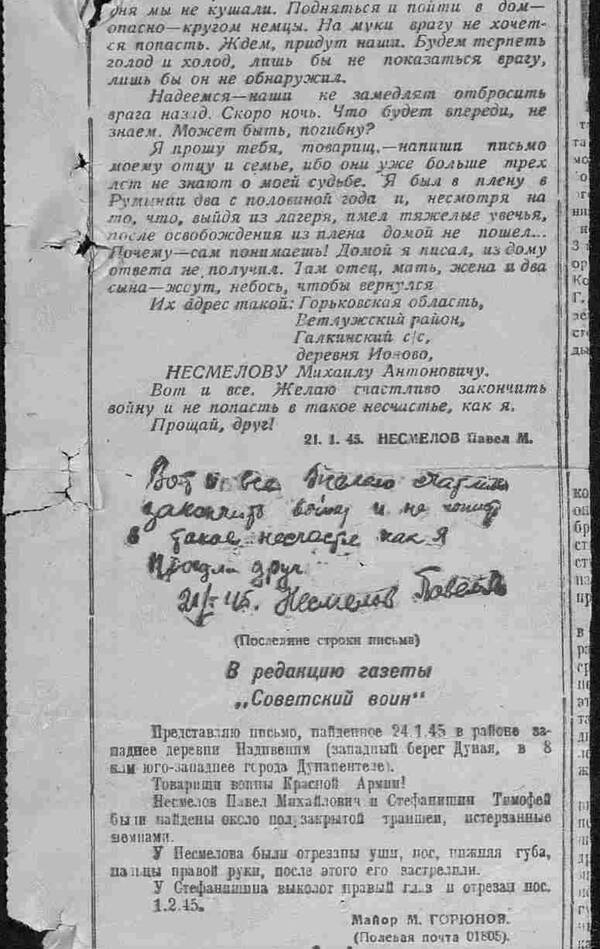 дня мы не кушали. Подняться и пойти в дом—
опасно—кругом немцы. На муки врагу не хочет-
ся попасть. Ждем, придут наши. Будем терпеть
голод и холод, лишь бы не показаться врагу,
лишь бы он не обнаружил.
Надеемся—наши не замедлят отбросить
врага назад. Скоро ночь. Что будет впереди, не
знаем. Может быть, погибну?
Я прошу тебя, товарищ,—напиши письмо
моему отцу и семье, ибо они уже больше трех
лет не знают о моей судьбе. Я был в плену в
Румынии два с половиной года и, несмотря на
то, что, выйдя из лагеря, имел тяжелые увечья,
после освобождения из плена домой не пошел...
Почему—сам понимаешь! Домой я писал, из дому
ответа не получил. Там отец, мать, жена и два
сына—ждут, небось, чтобы вернулся
Их адрес такой: Горьковская область,
Ветлужский район,
Галкинский с/с,
деревня Ионово,
НЕСМЕЛОВУ Михаилу Антоновичу.
Вот и все. Желаю счастливо закончить
войну и не попасть в такое несчастье, как я.
Прощай, друг!
21. 1. 45. НЕСМЕЛОВ Павел М.
Вот и все Желаю
закончить войну и не
в такое несчастье как я
Прощай друг
45. Несмелов Павел
(Последние строки письма)
В редакцию газеты
„Советский воин"
Представляю письмо, найденное 24.1.45 в районе за-
паднее деревни Надивения (западный берег Дуная, в 8
клм юго-западнее города Дунапентеле).
Товарищи воины Красной Армии!
Несмелов Павел Михайлович и Стефанишин Тимофей
были найдены около пол закрытой траншеи, истерзанные
немцами.
У Несмелова были отрезаны уши, нос, нижняя губа,
пальцы правой руки, после этого его застрелили.
У Стефанишина выколот правый глаз и отрезан нос.
1.2.45.
Майор М. ГОРЮНОВ.
(Полевая почта 01805).